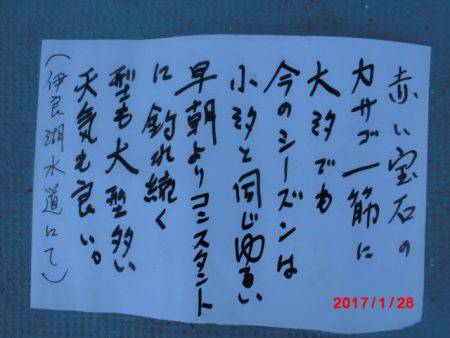 赤い宝石の
カサゴ一筋に
大汐でも
今のシーズンは
小汐と同じゆるい
早朝よりコンスタント
に釣れ続く
型も大型多い
天気も良い。
(伊良湖水道にて)
2017/1/28